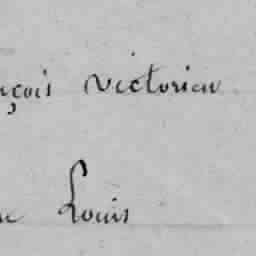 nçois Victorien
Louis